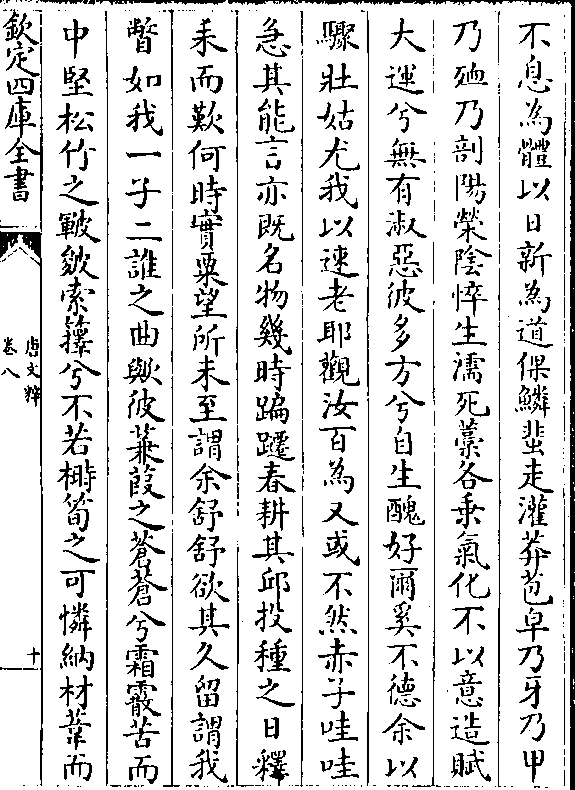 不息為體以日新為道倮鱗蜚走灌莽苞皁乃牙乃甲
乃殈乃剖陽榮陰悴生濡死藁各乗氣化不以意造賦
大運兮無有淑惡彼多方兮自生醜好爾奚不德余以
驟壯姑尤我以速老耶觀汝百為又或不然赤子哇哇
急其能言亦既名物幾時蹁躚春耕其邱投種之日釋
耒而歎何時實粟望所未至謂余舒舒欲其久留謂我
瞥如我一子二誰之曲歟彼蒹葭之蒼蒼兮霜霰苦而
中堅松竹之皸皴索籜兮不若櫹筍之可憐納材葦而
欽定四庫全書
唐文粹
卷八
十